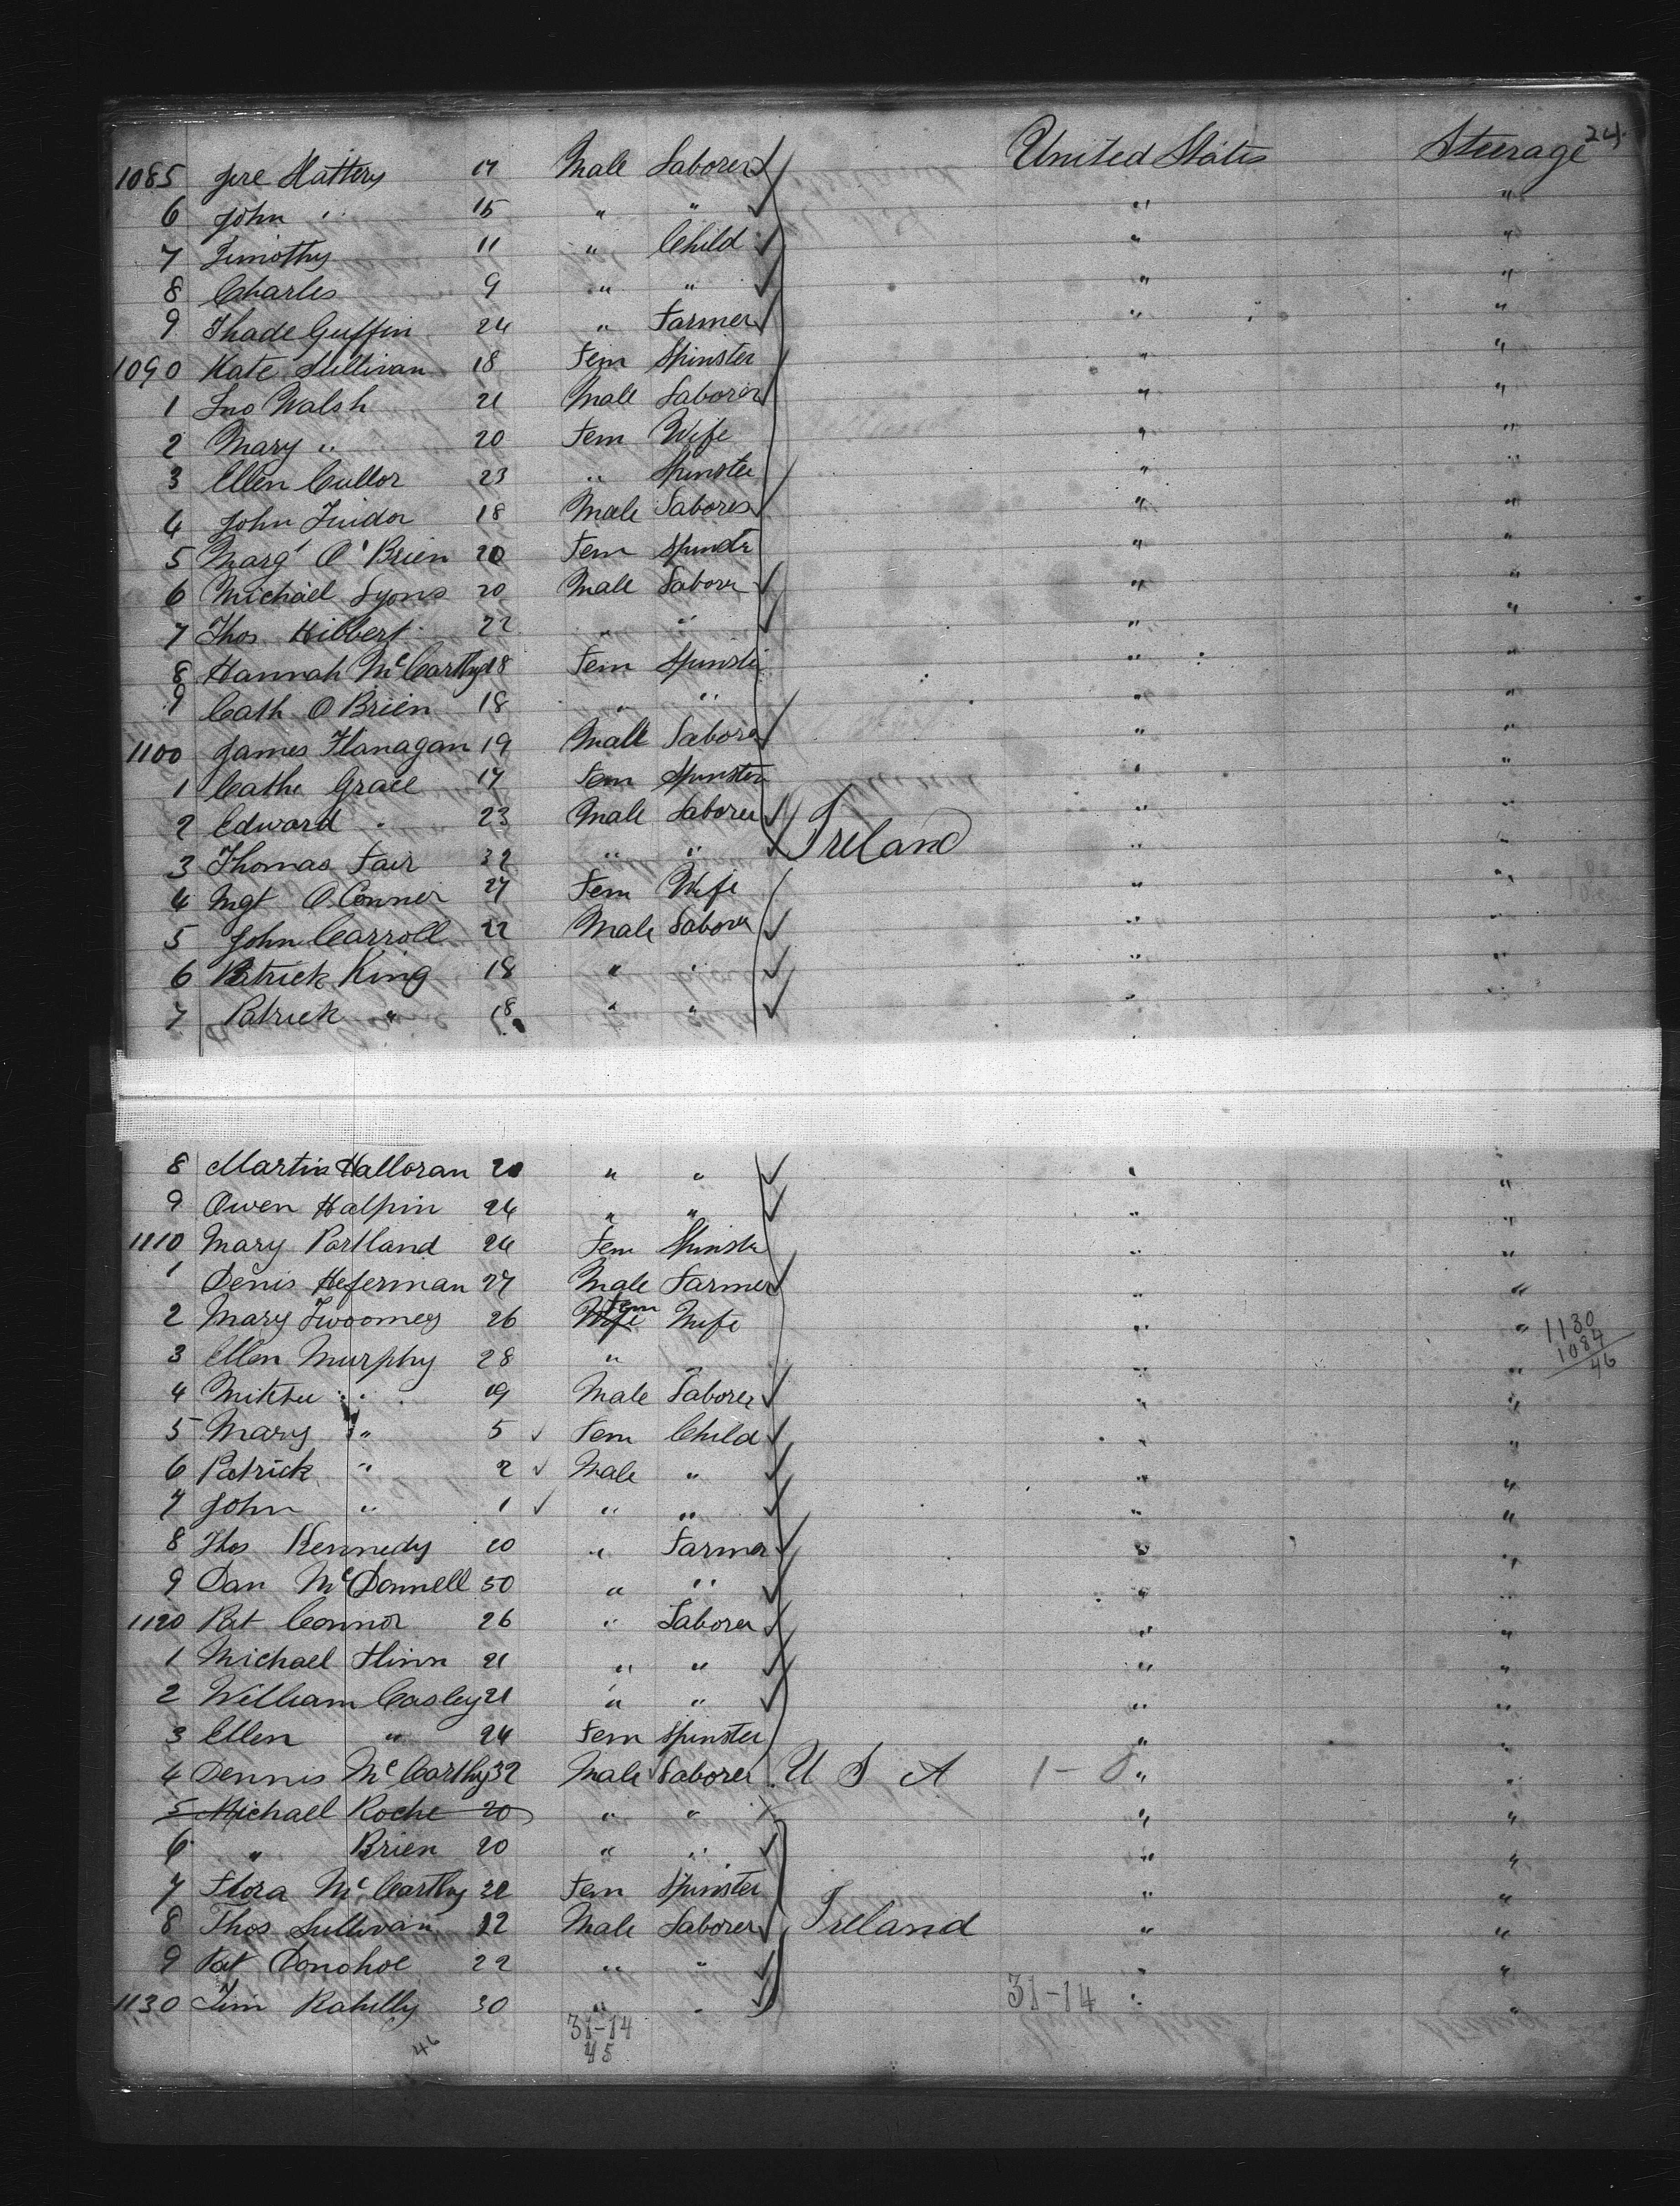 24
1085 Jere Slattery 17 Male Laborer United States Steerage
6 John " 15 " " " "
7 Timothy 11 " Child " "
8 Charles 9 " " " "
9 Thade Guffin 24 " Farmer " "
1090 Kate Sullivan 18 Fem Spinster " "
1 Jno Walsh 21 Male Laborer " "
2 Mary " 20 Fem Wife " "
3 Ellen Cullor 23 " Spinster " "
4 John 18 Male Laborer " "
5 Margt O'Brien 20 Fem Spinstr " "
6 Michael Lyons 20 Male Laborer " "
7 Thos Hibbert 22 " " " "
8 Hannah McCarthy 18 Fem Spinster " "
9 Cath O Brien 18 " " " "
1100 James Flanagan 19 Male Laborer " "
1 Cathe Grace 17 Fem Spinster " "
2 Edward " 23 Male Laborer Ireland " "
3 Thomas Fair 32 " " " "
4 Mgt O Conner 27 Fem Wife " "
5 John Carroll 22 Male Laborer " "
6 Patrick King 18 " " " "
7 Patrick " 18 " " " "
8 Martin Halloran 20 " " " "
9 Owen Halpin 24 " " " "
1110 Mary Portland 24 Fem Spinstr " "
1 Denis Heferman 27 Male Farmer " "
2 Mary Twoomey 26 Wife Fem Wife " " 1130
3 Ellen Murphy 28 " " " 1084
46
4 " 19 Male Laborer " "
5 Mary " 5 Fem Child " "
6 Patrick " 2 Male " " "
7 John " 1 " " " "
8 Thos Kennedy 20 " Farmer " "
9 Dan McDonnell 50 " " " "
1120 Pat Connor 26 " Laborer " "
1 Michael Flinn 21 " " " "
2 William Casley 21 " " " "
3 Ellen " 24 Fem Spinster " "
4 Dennis McCarthy 32 Male Laborer U S A 1-0 " "
5 Michael Roche 20 " " " "
6 " Brien 20 " " " "
7 Flora McCarthy Fem Spinster " "
8 Thos Sullivan 22 Male Laborer Ireland " "
9 Pat Donohoe 22 " " " "
1130 Tim Rahilly 30 " " 31-14 " "
46 31-14
45